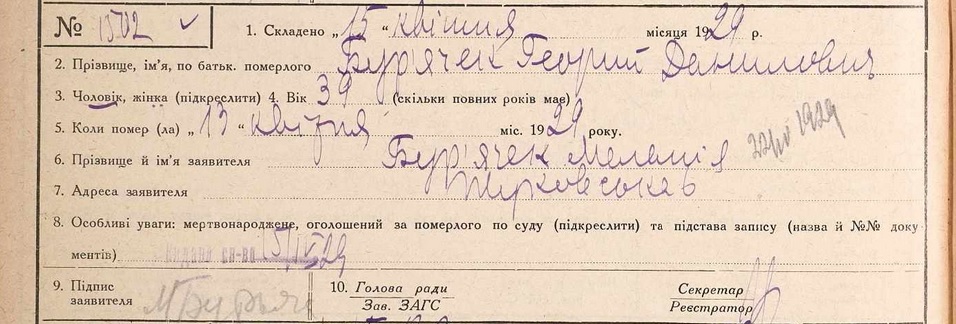 № 1502 ✓ 1. Складено „15“ квітня місяця 1929 р.
2. Прізвище, ім'я, по батьк. померлого Бур'ячек Георгій Данилович
3. Чоловік, жінка (підкреслити) 4. Вік 39 (скільки повних років має)
5. Коли помер (ла) „13“ квітня міс. 1929 року.
22/IV 1929
6. Прізвище й ім'я заявителя Бур'ячек Меланія
7. Адреса заявителя
8. Особливі уваги: мертвонароджене, оголошений за померлого по суду (підкреслити) та підстава запису (назва й №№ доку
ментів) Видано св-во 15/IV 29
9. Підпис заявителя 10. Голова ради Секретар
Зав. ЗАГС Реєстратор